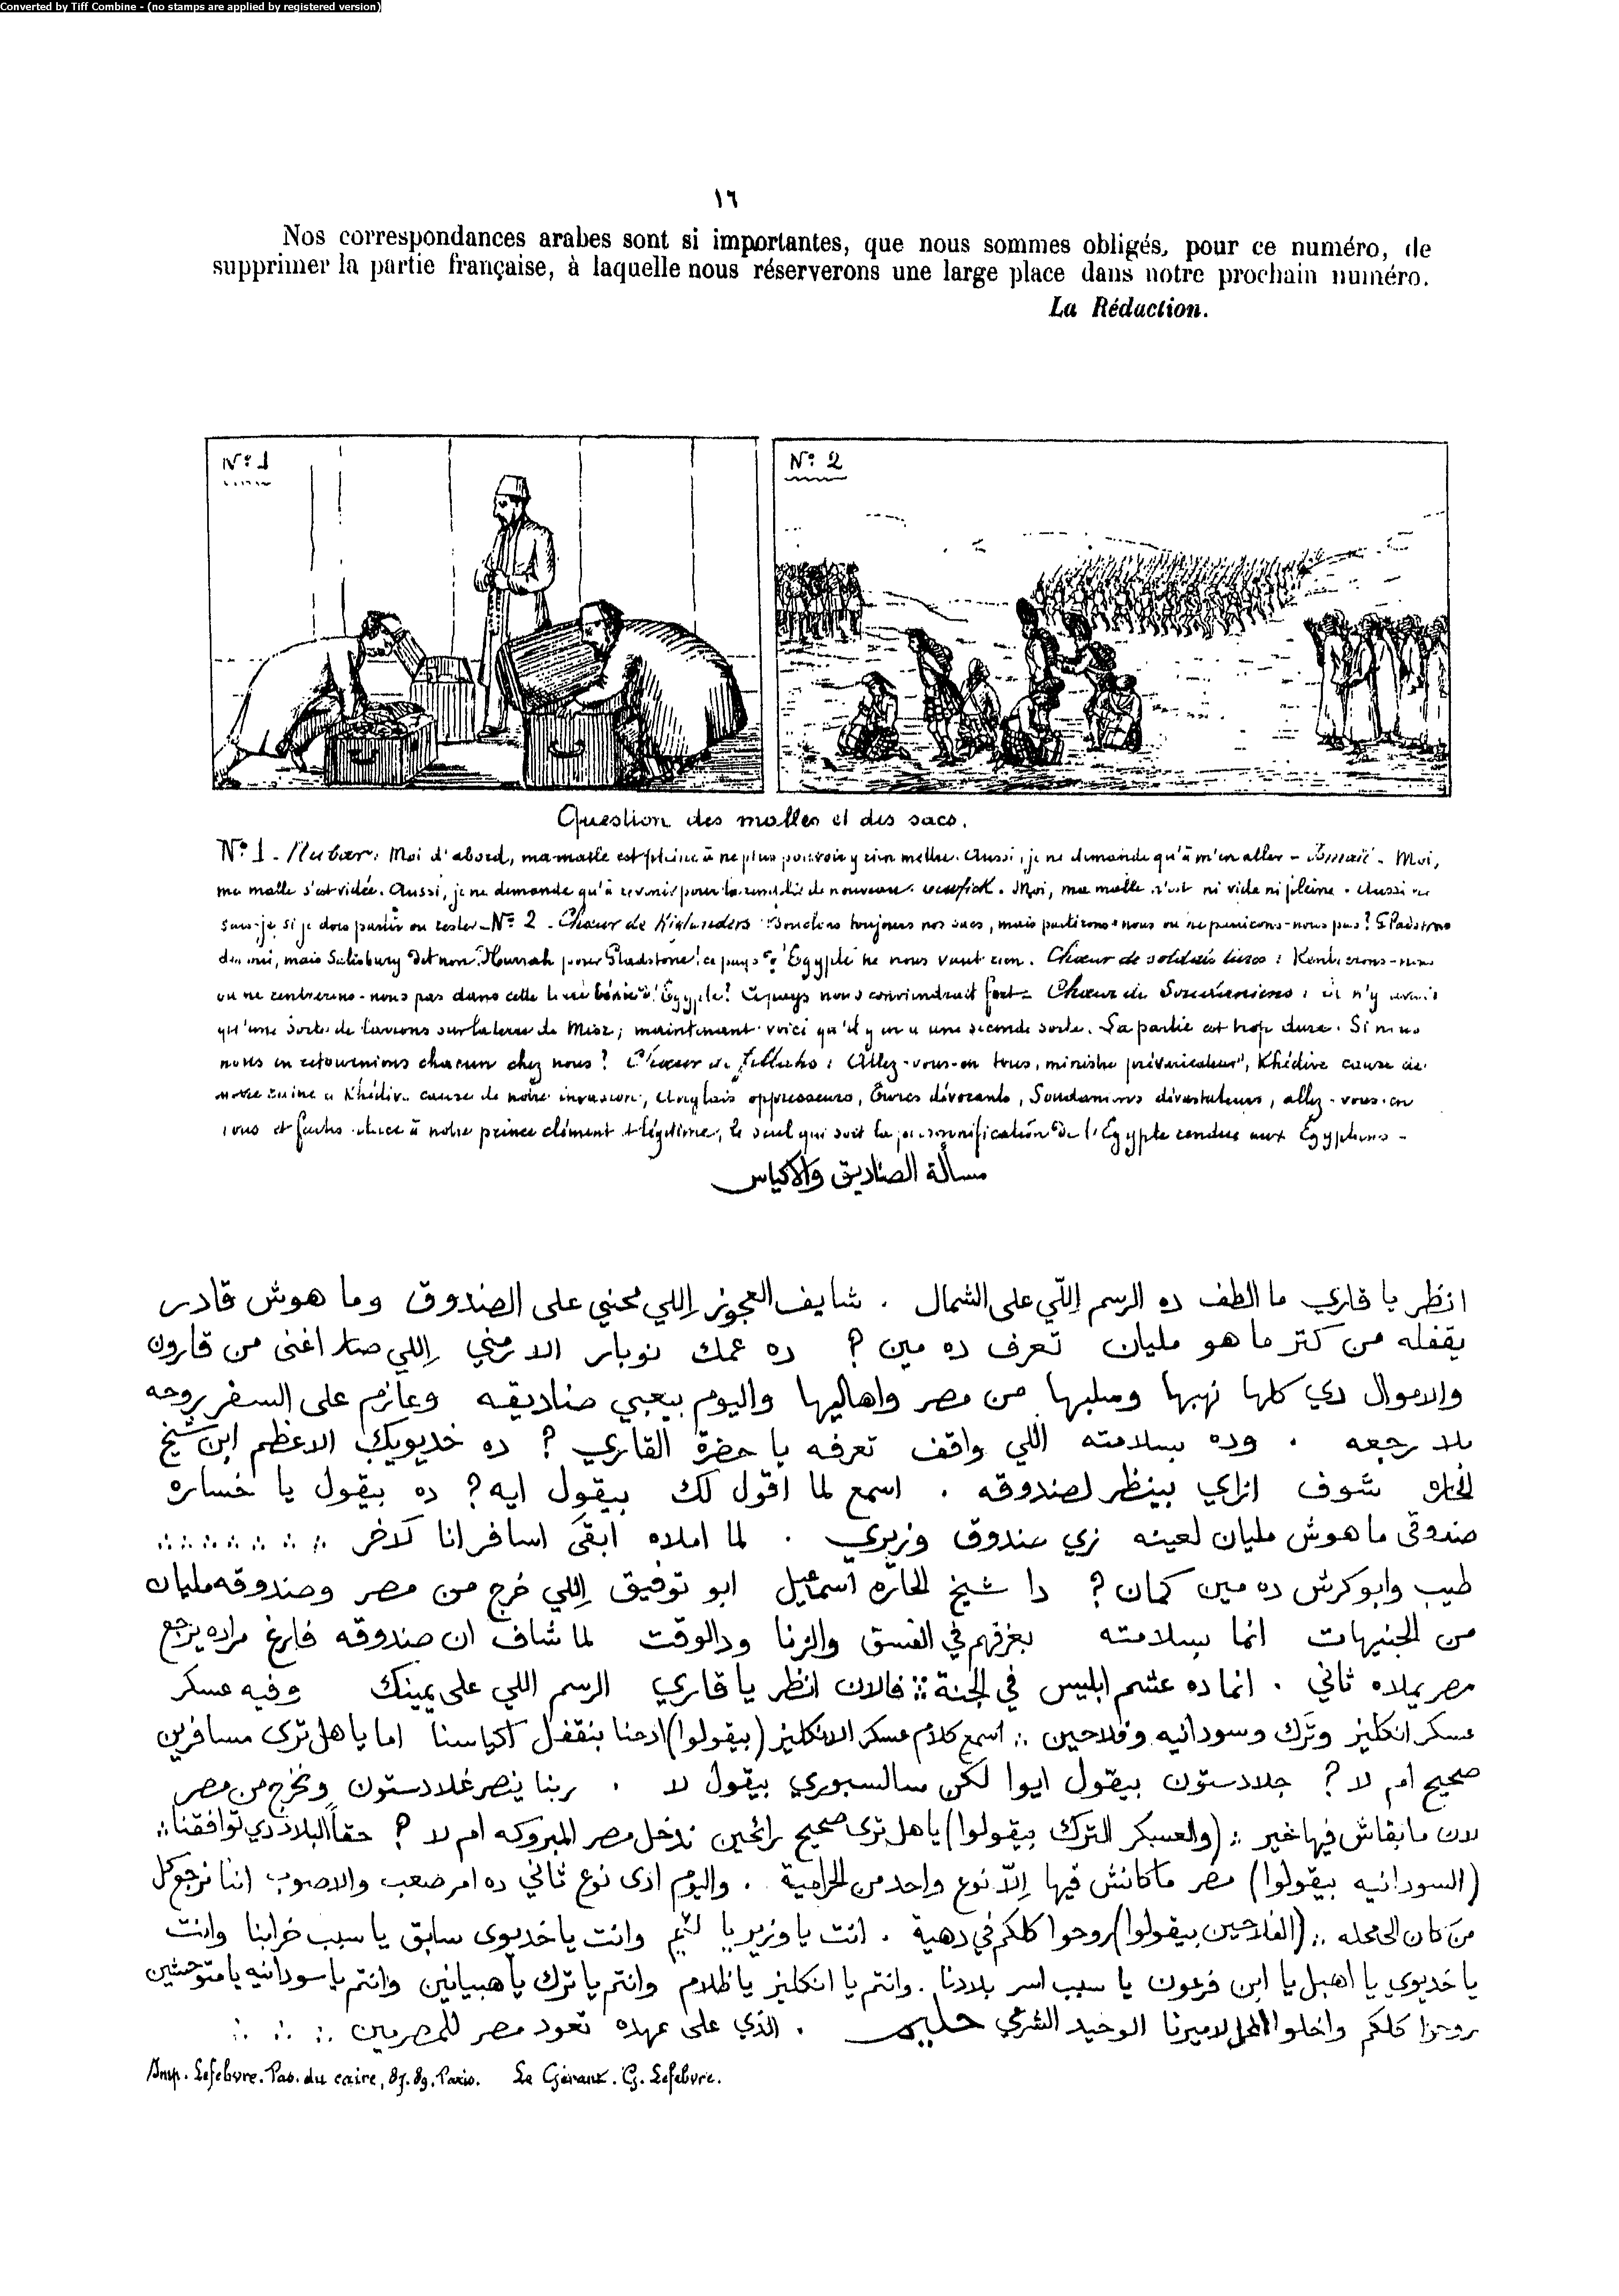 Converted by Tiff Combine - (no stamps are applied by registered version)
١٦
Nos correspondances arabes sont si importantes, que nous sommes obligés, pour ce numéro, de
supprimer la partie française, à laquelle nous réserverons une large place dans notre prochain numéro.
La Rédaction.
Nº 1
Nº 2
Question des malles et des sacs.
Nº 1 - Nubar: Moi d'abord, ma malle est pleine à ne plus pouvoir y rien mettre. Aussi, je ne demande qu'à m'en aller - Ismaïl - Moi,
ma malle s'est vidée. Aussi, je ne demande qu'à revenir pour la remplir de nouveau. Tewfick. Moi, ma malle n'est ni vide ni pleine. Aussi ne
sais-je si je dois partir ou rester - Nº 2 - Chœur de Highlanders: Bouclons toujours nos sacs, mais partirons-nous ou ne partirons-nous pas? Gladstone
dit oui, mais Salisbury dit non. Hurrah pour Gladstone! ce pays d'Egypte ne nous vaut rien. Chœur de soldats turcs: Rentrerons-nous
ou ne rentrerons-nous pas dans cette terre bénie d'Egypte? Ce pays nous conviendrait fort - Chœur de Soudaniens: il n'y avait
qu'une sorte de larrons sur la terre de Misr; maintenant voici qu'il y en a une seconde sorte. La partie est trop dure. Si nous
nous en retournions chacun chez nous? Chœur de fellahs: Allez-vous-en tous, ministre prévaricateur, Khédive cause de
notre ruine et Khédive cause de notre invasion, Anglais oppresseurs, Turcs dévorants, Soudaniens dévastateurs, allez-vous-en
tous et faites place à notre prince clément et légitime, le seul qui soit la personnification de l'Egypte rendue aux Egyptiens -
مسألة الصناديق والاكياس
انظر يا قاري ما الطف ده الرسم اللّي على الشمال . شايف العجوز اللي محني على الصندوق وما هوش قادر
يقفله من كتر ما هو مليان تعرف ده مين ? ده عمك نوبار الارمني اللي صار اغنى من قارون
والاموال دي كلها نهبها وسلبها من مصر واهاليها واليوم بيعبي صناديقه وعازم على السفر بروحه
بلا رجعه . وده بسلامته اللي واقف تعرفه يا حضرة القاري ? ده خديويك الاعظم ابن شيخ
الحاره شوف ازاي بينظر لصندوقه . اسمع لما اقول لك بيقول ايه ? ده بيقول يا خساره
صندوقى ما هوش مليان لعينه زي صندوق وزيري . لما املاه ابقى اسافر انا لاخر
طيب وابو كرش ده مين كمان ? دا شيخ الحاره اسماعيل ابو توفيق اللي خرج من مصر وصندوقه مليان
من الجنيهات انما بسلامته بعزقهم في الفسق والزنا ودالوقت لما شاف ان صندوقه فارغ مراده يرجع
مصر يملاه ثاني . انما ده عشم ابليس في الجنة ؛؛ فالان انظر يا قاري الرسم اللي على يمينك وفيه عسكر
عسكر انكليز وترك وسودانيه وفلاحين ؛ اسمع كلام عسكر الانكليز (بيقولوا) ادحنا بنقفل اكياسنا اما يا هل ترى مسافرين
صحيح ام لا ? جلادستون بيقول ايوا لكن سالسبوري بيقول لا . ربنا ينصر غلادستون ونخرج من مصر
لان ما بقاش فيها خير ؛ (والعسكر الترك بيقولوا) يا هل ترى صحيح رائحين ندخل مصر المبروكه ام لا ? حقاً البلاد دي توافقنا ؛
(السودانيه بيقولوا) مصر ما كانش فيها الّا نوع واحد من الحرامية . واليوم ادى نوع ثاني ده امر صعب والاصوب اننا نرجع كل
من كان الى محله ؛ (الفلاحين بيقولوا) روحوا كلكم في دهية . انت يا وزير يا لئيم وانت يا خديوى سابق يا سبب خرابنا وانت
يا خديوي يا اهبل يا ابن فرعون يا سبب اسر بلادنا . وانتم يا انكليز يا ظلام وانتم يا ترك يا هبيانين وانتم يا سودانيه يا متوحشين
روحوا كلكم واخلوا المحل لاميرنا الوحيد الشرعي حليم . الذي على عهده تعود مصر للمصريين
Imp. Lefebvre. Pas. du caire, 87.89. Paris. Le Gérant. G. Lefebvre.